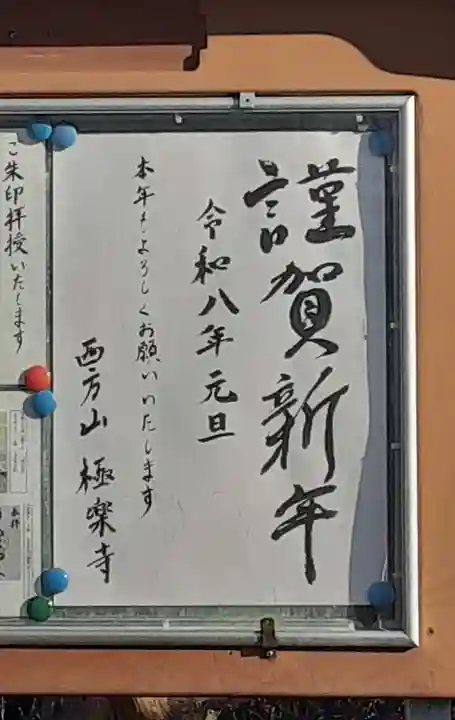 謹賀新年
令和八年元旦
本年もよろしくお願いいたします
西方山 極楽寺
ご朱印拝授いたします